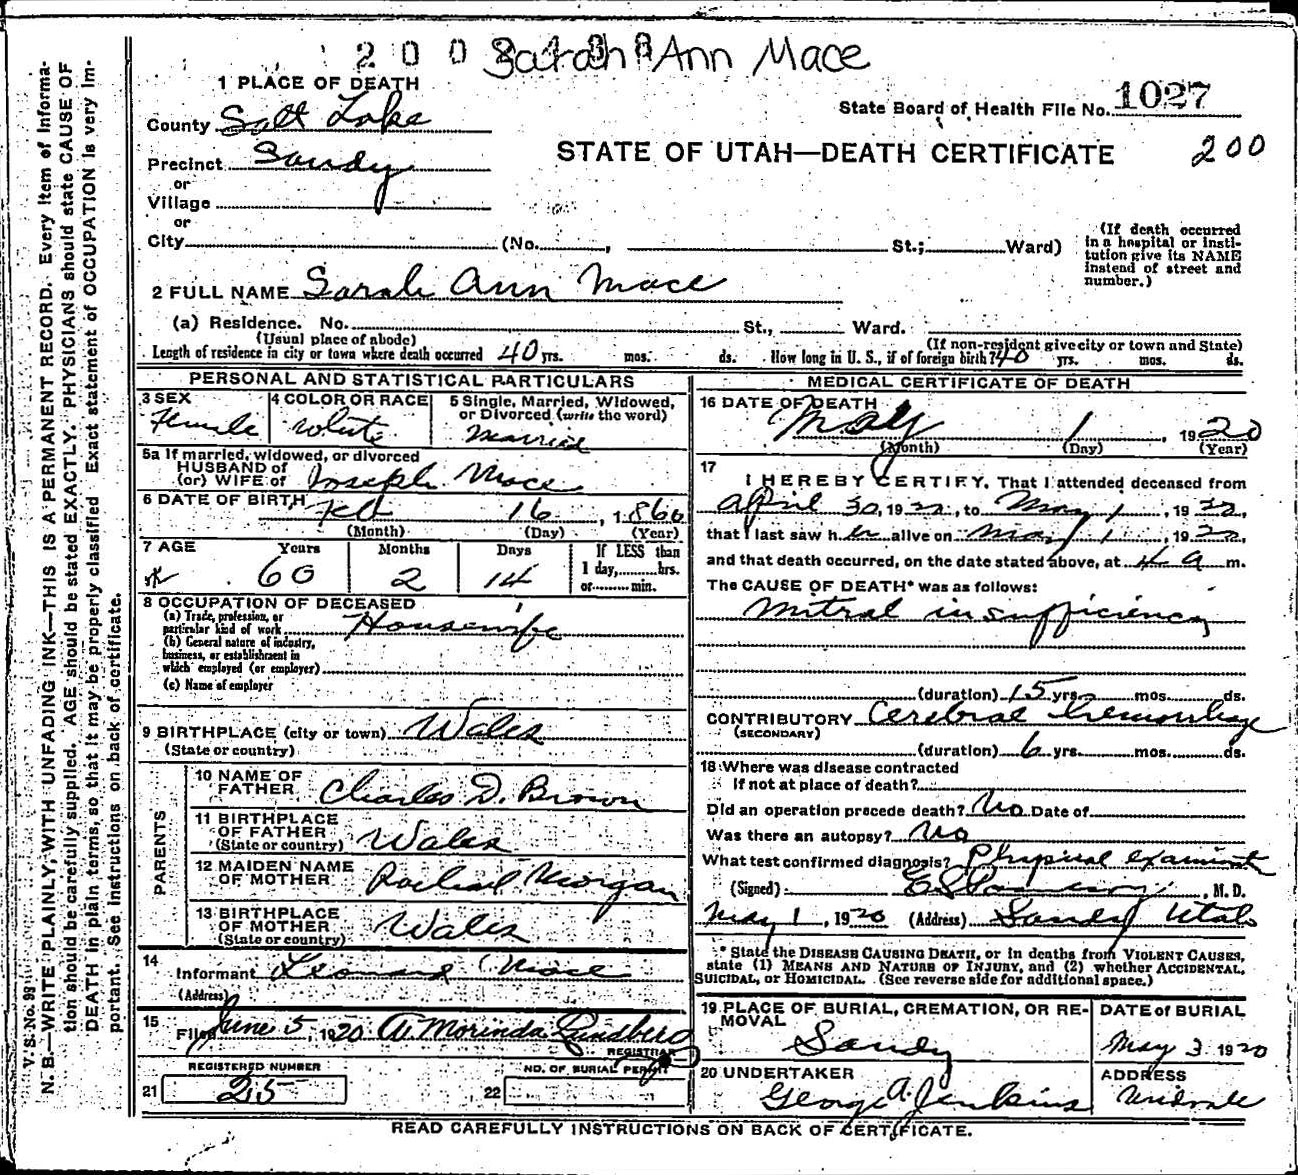 200
Sarah Ann Mace
1 PLACE OF DEATH
State Board of Health File No. 1027
County Salt Lake
STATE OF UTAH—DEATH CERTIFICATE
200
Precinct Sandy
or
Village
or
City (No. , St.; Ward)
(If death occurred in a hospital or institution give its NAME instead of street and number.)
2 FULL NAME Sarah Ann Mace
(a) Residence. No. St., Ward.
(Usual place of abode) (If non-resident give city or town and State)
Length of residence in city or town where death occurred 40 yrs. mos. ds. How long in U. S., if of foreign birth? 40 yrs. mos. ds.
PERSONAL AND STATISTICAL PARTICULARS
3 SEX Female
4 COLOR OR RACE White
5 Single, Married, Widowed, or Divorced (write the word) Married
5a If married, widowed, or divorced
HUSBAND of
(or) WIFE of Joseph Mace
6 DATE OF BIRTH Feb 16, 1860
(Month) (Day) (Year)
7 AGE Years Months Days If LESS than 1 day, hrs. or min.
60 2 14
8 OCCUPATION OF DECEASED
(a) Trade, profession, or particular kind of work Housewife
(b) General nature of industry, business, or establishment in which employed (or employer)
(c) Name of employer
9 BIRTHPLACE (city or town) Wales
(State or country)
PARENTS
10 NAME OF FATHER Charles D. Brown
11 BIRTHPLACE OF FATHER (State or country) Wales
12 MAIDEN NAME OF MOTHER Rachael Morgan
13 BIRTHPLACE OF MOTHER (State or country) Wales
14 Informant Leonard Mace
(Address)
15 Filed June 5, 1920 A. Morinda Lindberg
REGISTRAR
REGISTERED NUMBER
21 25
NO. OF BURIAL PERMIT
22
MEDICAL CERTIFICATE OF DEATH
16 DATE OF DEATH
May 1, 1920
(Month) (Day) (Year)
17 I HEREBY CERTIFY, That I attended deceased from
April 30, 1920, to May 1, 1920,
that I last saw her alive on May 1, 1920,
and that death occurred, on the date stated above, at 4 a m.
The CAUSE OF DEATH* was as follows:
Mitral insufficiency
(duration) 15 yrs. mos. ds.
CONTRIBUTORY Cerebral hemorrhage
(SECONDARY)
(duration) 6 yrs. mos. ds.
18 Where was disease contracted
If not at place of death?
Did an operation precede death? No Date of
Was there an autopsy? No
What test confirmed diagnosis? Physical
(Signed) , M. D.
May 1, 1920 (Address) Sandy Utah
* State the DISEASE CAUSING DEATH, or in deaths from VIOLENT CAUSES,
state (1) MEANS AND NATURE OF INJURY, and (2) whether ACCIDENTAL,
SUICIDAL, or HOMICIDAL. (See reverse side for additional space.)
19 PLACE OF BURIAL, CREMATION, OR REMOVAL
Sandy
DATE of BURIAL
May 3 1920
20 UNDERTAKER
George A. Jenkins
ADDRESS
Midvale
READ CAREFULLY INSTRUCTIONS ON BACK OF CERTIFICATE.
V. S. No. 99
N. B.—WRITE PLAINLY, WITH UNFADING INK—THIS IS A PERMANENT RECORD. Every item of information should be carefully supplied. AGE should be stated EXACTLY. PHYSICIANS should state CAUSE OF DEATH in plain terms, so that it may be properly classified. Exact statement of OCCUPATION is very important. See instructions on back of certificate.